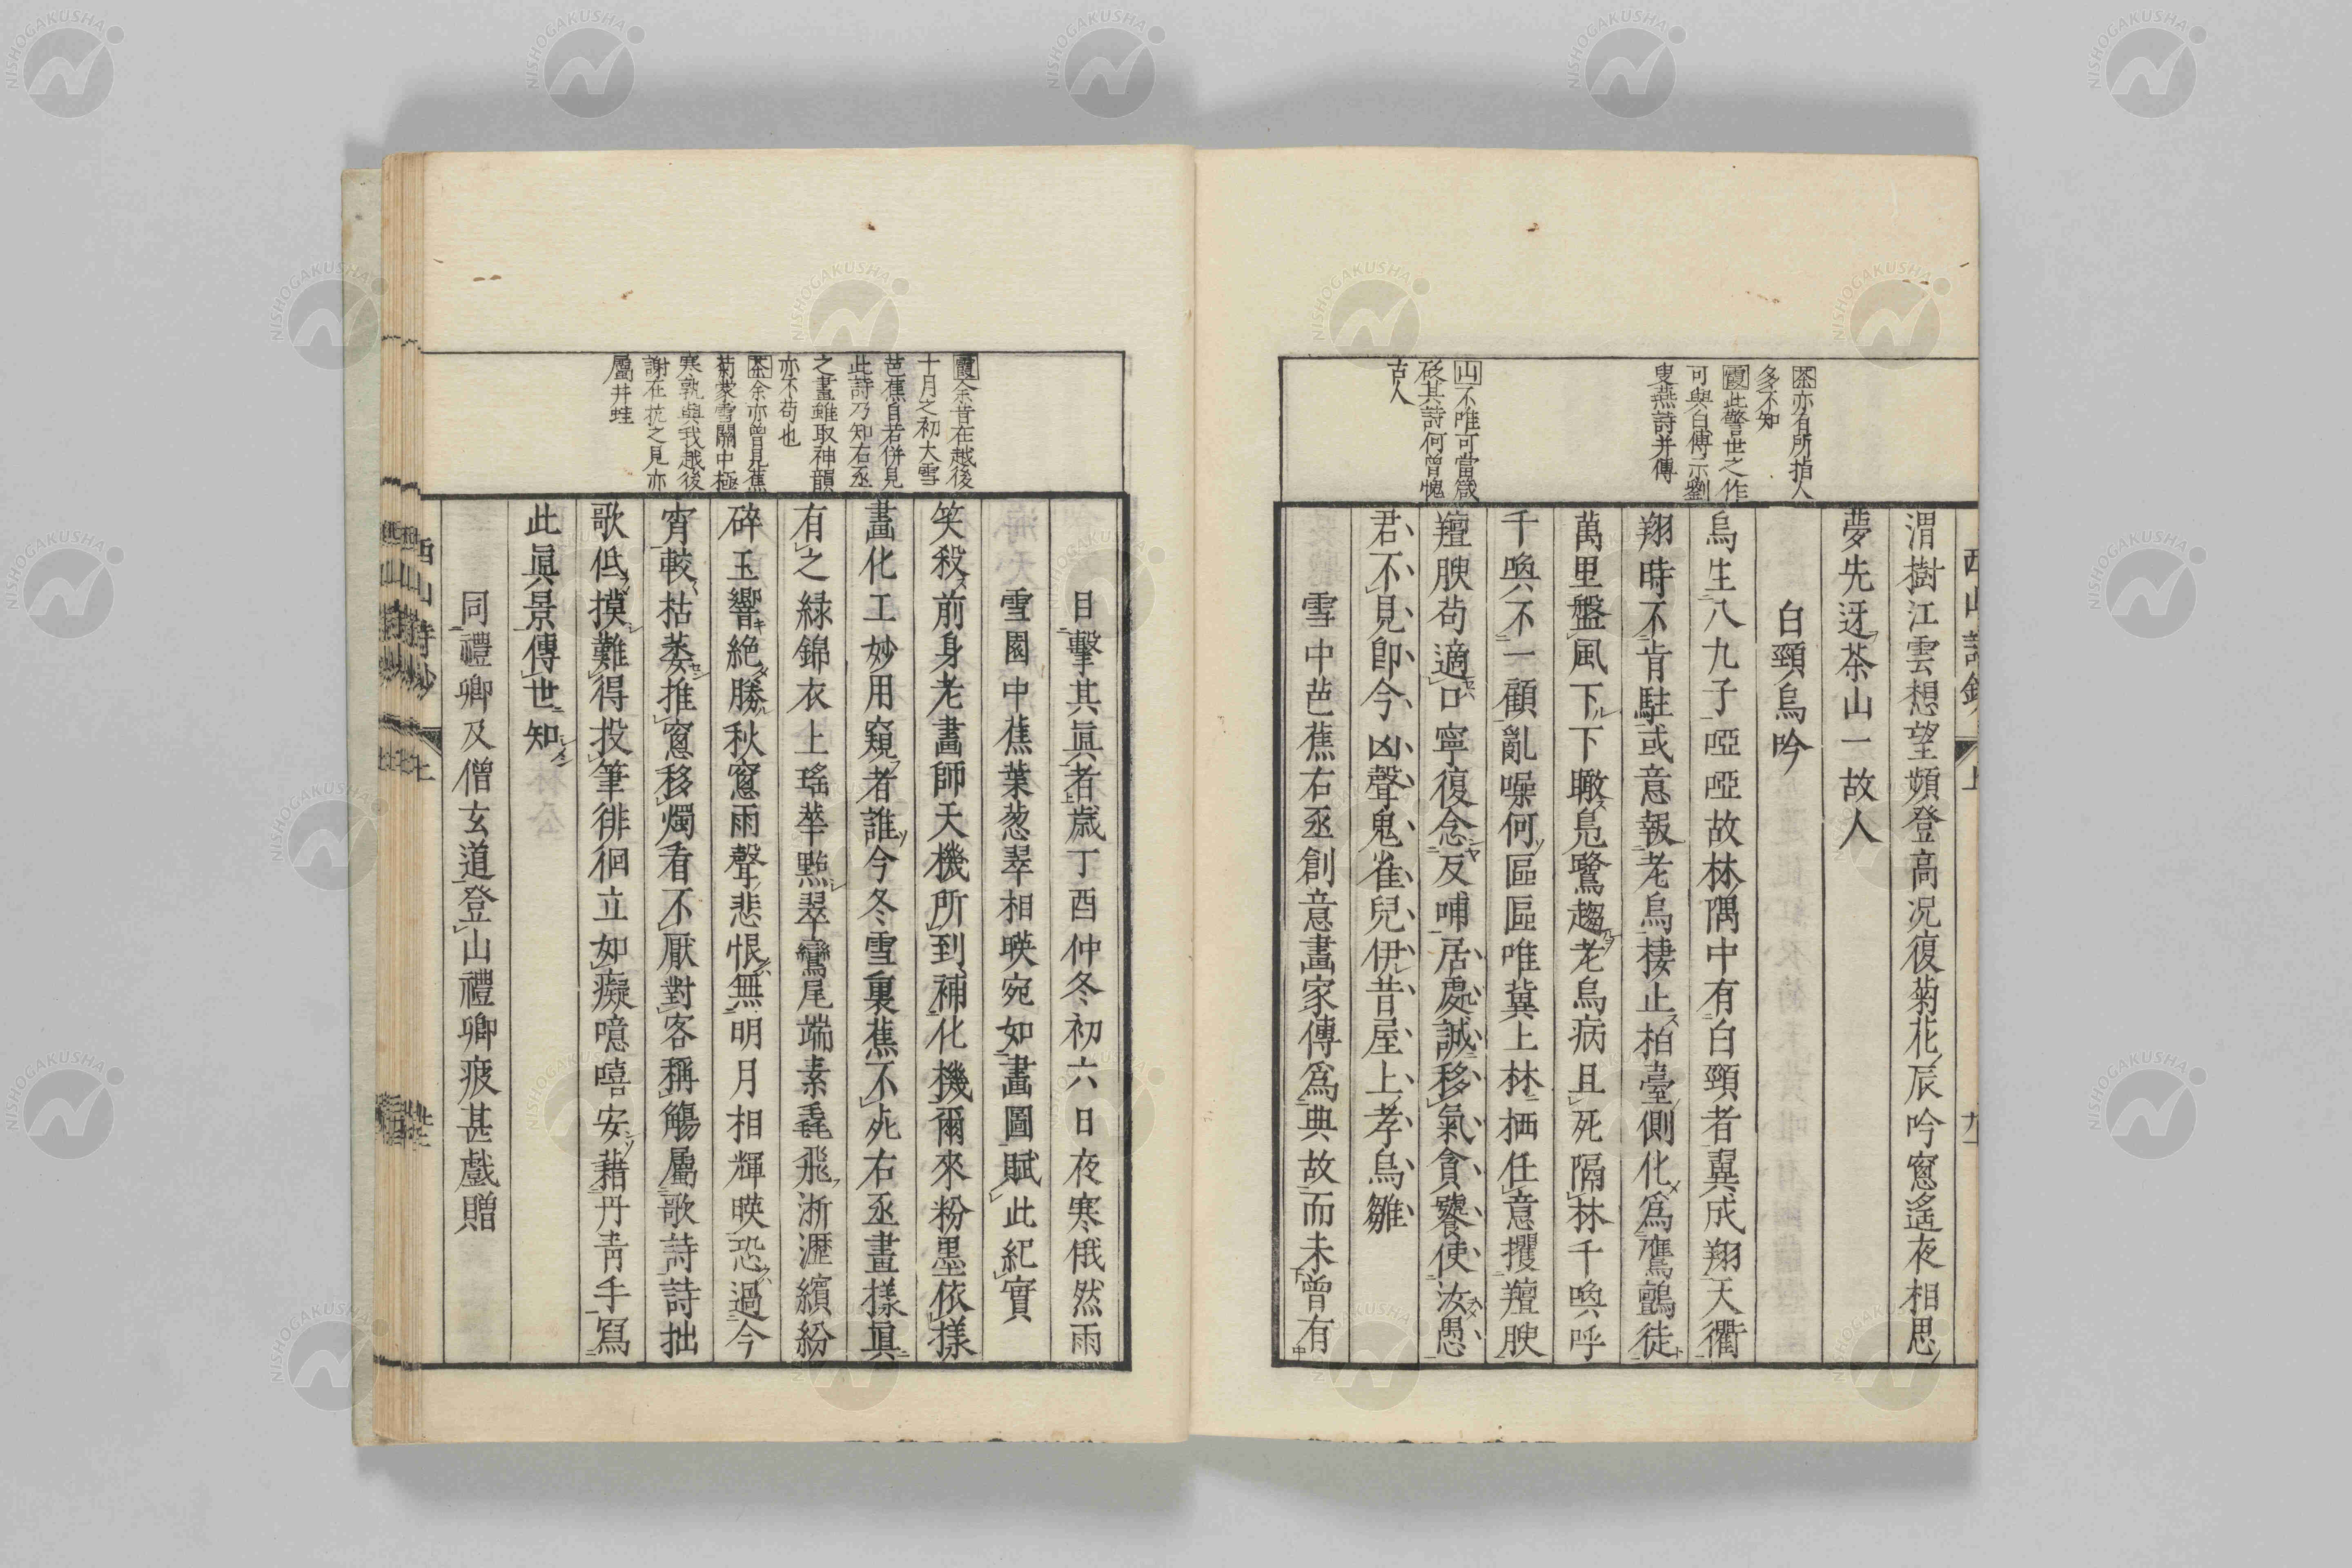 西山詩鈔 上
渭樹江雲想望頻登高况復菊花辰吟窓遙夜相思
夢先迓茶山一故人
白頸烏吟
烏生八九子啞啞故林隅中有白頸者冀成翔天衢
翔時不肯駐或意報老烏棲止柏臺側化爲鷹鸇徒
萬里盤風下下瞰鳧鷖趨老烏病且死隔林千喚呼
千喚不一顧亂噪何區區唯冀上林栖任意攫羶腴
羶腴苟適口寧復念反哺居處誠移氣貪饕使汝愚
君不見卽今凶聲鬼雀兒伊昔屋上孝烏雛
雪中芭蕉右丞創意畫家傳爲典故而未曾有
茶亦有所指人
多不知
霞此警世之作
可與白傅示劉
叟燕詩并傳
山不唯可當箴
砭其詩何曾愧
古人
目擊其眞者歲丁酉仲冬初六日夜寒俄然雨
雪園中蕉葉葱翠相暎宛如畫圖賦此紀實
笑殺前身老畫師天機所到補化機爾來粉墨依樣
畫化工妙用窺者誰今冬雪裏蕉不死右丞畫樣眞
有之緑錦衣上瑤華點翠鸞尾端素毳飛浙瀝繽紛
碎玉響絶勝秋窓雨聲悲恨無明月相輝暎恐過今
宵較枯萎推窓移燭看不厭對客稱觴屬歌詩詩拙
歌低摸難得投筆徘徊立如癡噫嘻安藉丹青手寫
此眞景傳世知
同禮卿及僧玄道登山禮卿疲甚戲贈
霞余昔在越後
十月之初大雪
芭蕉自若併見
此詩乃知右丞
之畫雖取神韻
亦不苟也
茶余亦曾見蕉
菊蒙雪關中極
寒孰與我越後
謝在杭之見亦
屬井蛙
西山詩鈔